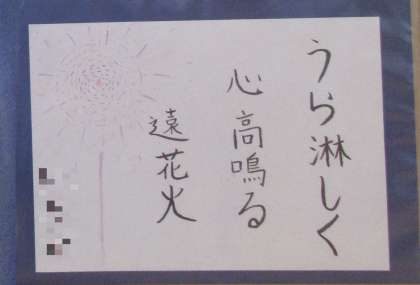 うら淋しく
心高鳴る
遠花火